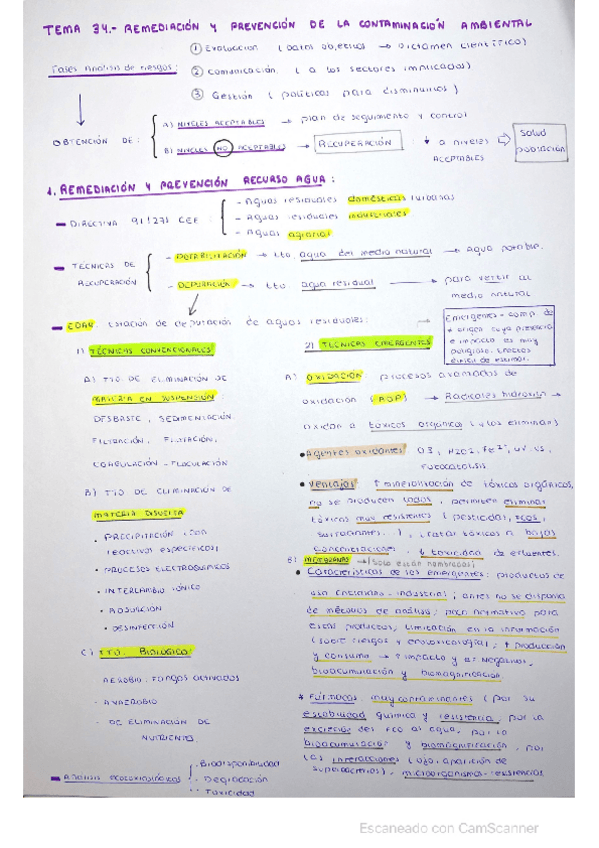 TEMA 34.- REMEDIACIÓN Y PREVENCIÓN DE LA CONTAMINACIÓN AMBIENTAL
Fases Análisis de riesgos:
① Evaluación (datos objetivos → Dictamen científico)
② Comunicación (a los sectores implicados)
③ Gestión (políticas para disminuirlos)
OBTENCIÓN DE:
A) NIVELES ACEPTABLES → plan de seguimiento y control
B) NIVELES NO ACEPTABLES → RECUPERACIÓN : ↓ a niveles ACEPTABLES
Salud población
1. REMEDIACIÓN Y PREVENCIÓN RECURSO AGUA:
- DIRECTIVA 91/271 CEE:
- Aguas residuales domésticas urbanas
- Aguas residuales industriales
- Aguas agrarias
- TÉCNICAS DE RECUPERACIÓN
- POTABILIZACIÓN → tto. agua del medio natural → Agua potable.
- DEPURACIÓN → tto. agua residual → para verter al medio natural
- EDAR: Estación de depuración de aguas residuales:
Emergentes = comp. de ≠ origen cuya presencia e impacto es muy peligroso. Efectos
1) TÉCNICAS CONVENCIONALES
A) TTO DE ELIMINACIÓN DE
MATERIA EN SUSPENSIÓN:
DESBASTE, SEDIMENTACIÓN,
FILTRACIÓN, FLOTACIÓN,
COAGULACIÓN - FLOCULACIÓN
B) TTO DE ELIMINACIÓN DE
MATERIA DISUELTA
• PRECIPITACIÓN (con
reactivos específicos)
• PROCESOS ELECTROQUÍMICOS
• INTERCAMBIO IÓNICO
• ADSORCIÓN
• DESINFECCIÓN
C) TTO. BIOLÓGICO:
AEROBIO: FANGOS ACTIVADOS
- ANAEROBIO
- DE ELIMINACIÓN DE
NUTRIENTES
- Análisis ecotoxicológicos
. Biodisponibilidad
. Degradación
. Toxicidad
2) TÉCNICAS EMERGENTES
A) OXIDACIÓN: procesos avanzados de
oxidación (AOP) → Radicales hidroxilo →
oxidan a tóxicos orgánicos (y los eliminan)
• Agentes oxidantes: O3, H2O2, Fe²⁺, UV, US,
Fotocatálisis
• Ventajas: ↑ mineralización de tóxicos orgánicos,
no se producen lodos, permiten eliminar
tóxicos muy resistentes (pesticidas, PCBs,
surfactantes...), tratar tóxicos a bajas
concentraciones, ↓ toxicidad de efluentes.
B) MEMBRANAS → (solo están nombradas)
• Características de los emergentes: productos de
uso cotidiano - industrial; antes no se disponía
de métodos de análisis; poca normativa para
estos productos, limitación en la información
(sobre riesgos y ecotoxicología); ↑ producción
y consumo → ↑ impacto y efectos negativos,
bioacumulación y biomagnificación.
* Fármacos: muy contaminantes (por su
estabilidad química y resistencia, por la
excreción del fco al agua, por la
bioacumulación y biomagnificación, por
las interacciones (uso, aparición de
), microorganismos-resistencias
Escaneado con CamScanner